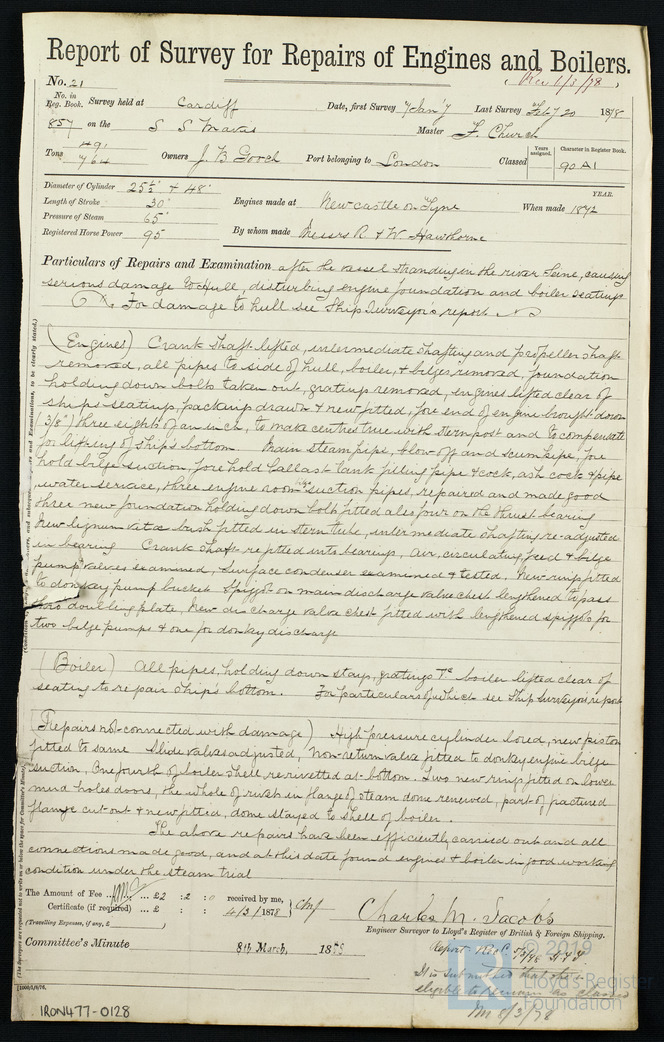 Report of Survey for Repairs of Engines and Boilers.
No. 21
Rec 6/3/78
No. in Reg. Book. Survey held at Cardiff Date, first Survey 7 Jany Last Survey Feby 20 1878
857 on the S S Mavas Master F. Church
Tons 491 764 Owners J. B Gooch Port belonging to London Classed Years assigned. Character in Register Book. 90 A1
Diameter of Cylinder 25½" + 48"
Length of Stroke 30" Engines made at Newcastle on Tyne When made YEAR. 1872
Pressure of Steam 65
Registered Horse Power 95 By whom made Messrs R & W. Hawthorne
Particulars of Repairs and Examination after the vessel stranding in the river Seine, causing
serious damage to hull, disturbing engine foundation and boiler seatings
For damage to hull see Ship Surveyor's report
(Engines) Crank shaft lifted, intermediate shafting and propeller shaft
removed, all pipes to side of hull, boiler, & bilges removed, foundation
holding down bolts taken out, gratings removed, engines lifted clear of
ships seatings, packing drawn & new fitted, fore end of engine brought down
(3/8") three eights of an inch, to make centres true with sternpost and to compensate
for lifting of ship's bottom. Main steam pipe, blow off and scum pipe, fore
hold bilge suction, fore hold ballast tank filling pipe & cock, ash cock & pipe
water service, three engine room bilge suction pipes, repaired and made good
three new foundation holding down bolts fitted also four on the thrust bearing
New lignum vitæ bush fitted in stern tube, intermediate shafting re-adjusted
in bearing Crank shaft refitted into bearings, air, circulating feed & bilge
pump valves examined, surface condenser examined & tested, New ring fitted
to donkey pump bucket Spigot on main discharge valve chest lengthened to pass
thro doubling plate, New discharge valve chest fitted with lengthened spiggots for
two bilge pumps & one for donkey discharge
(Boiler) All pipes, holding down stays, gratings &c boiler lifted clear of
seating to repair ship's bottom. For particulars of which see Ship Surveyors report
(Repairs not connected with damage) High pressure cylinder bored, new piston
fitted to same Slide valves adjusted, Non-return valve fitted to donkey engine bilge
suction, One fourth of boiler shell re rivetted at bottom. Two new rings fitted on lower
mud holes doors, the whole of rivets in flange of steam dome renewed, part of fractured
flange cut out & new fitted, dome stayed to shell of boiler.
The above repairs have been efficiently carried out and all
connections made good, and at this date found engines & boiler in good working
condition under the steam trial
The Amount of Fee ... £2 : 2 : 0 received by me,
Certificate (if required) ... £ : : 4/3/1878 CMJ
(Travelling Expenses, if any, £ )
Charles M. Jacobs
Engineer Surveyor to Lloyd's Register of British & Foreign Shipping.
Committee's Minute 8th March, 1878
It is submitted that she is
eligible to remain as classed
8/3/78
© 2019
Lloyd's Register
Foundation
IRON477-0128